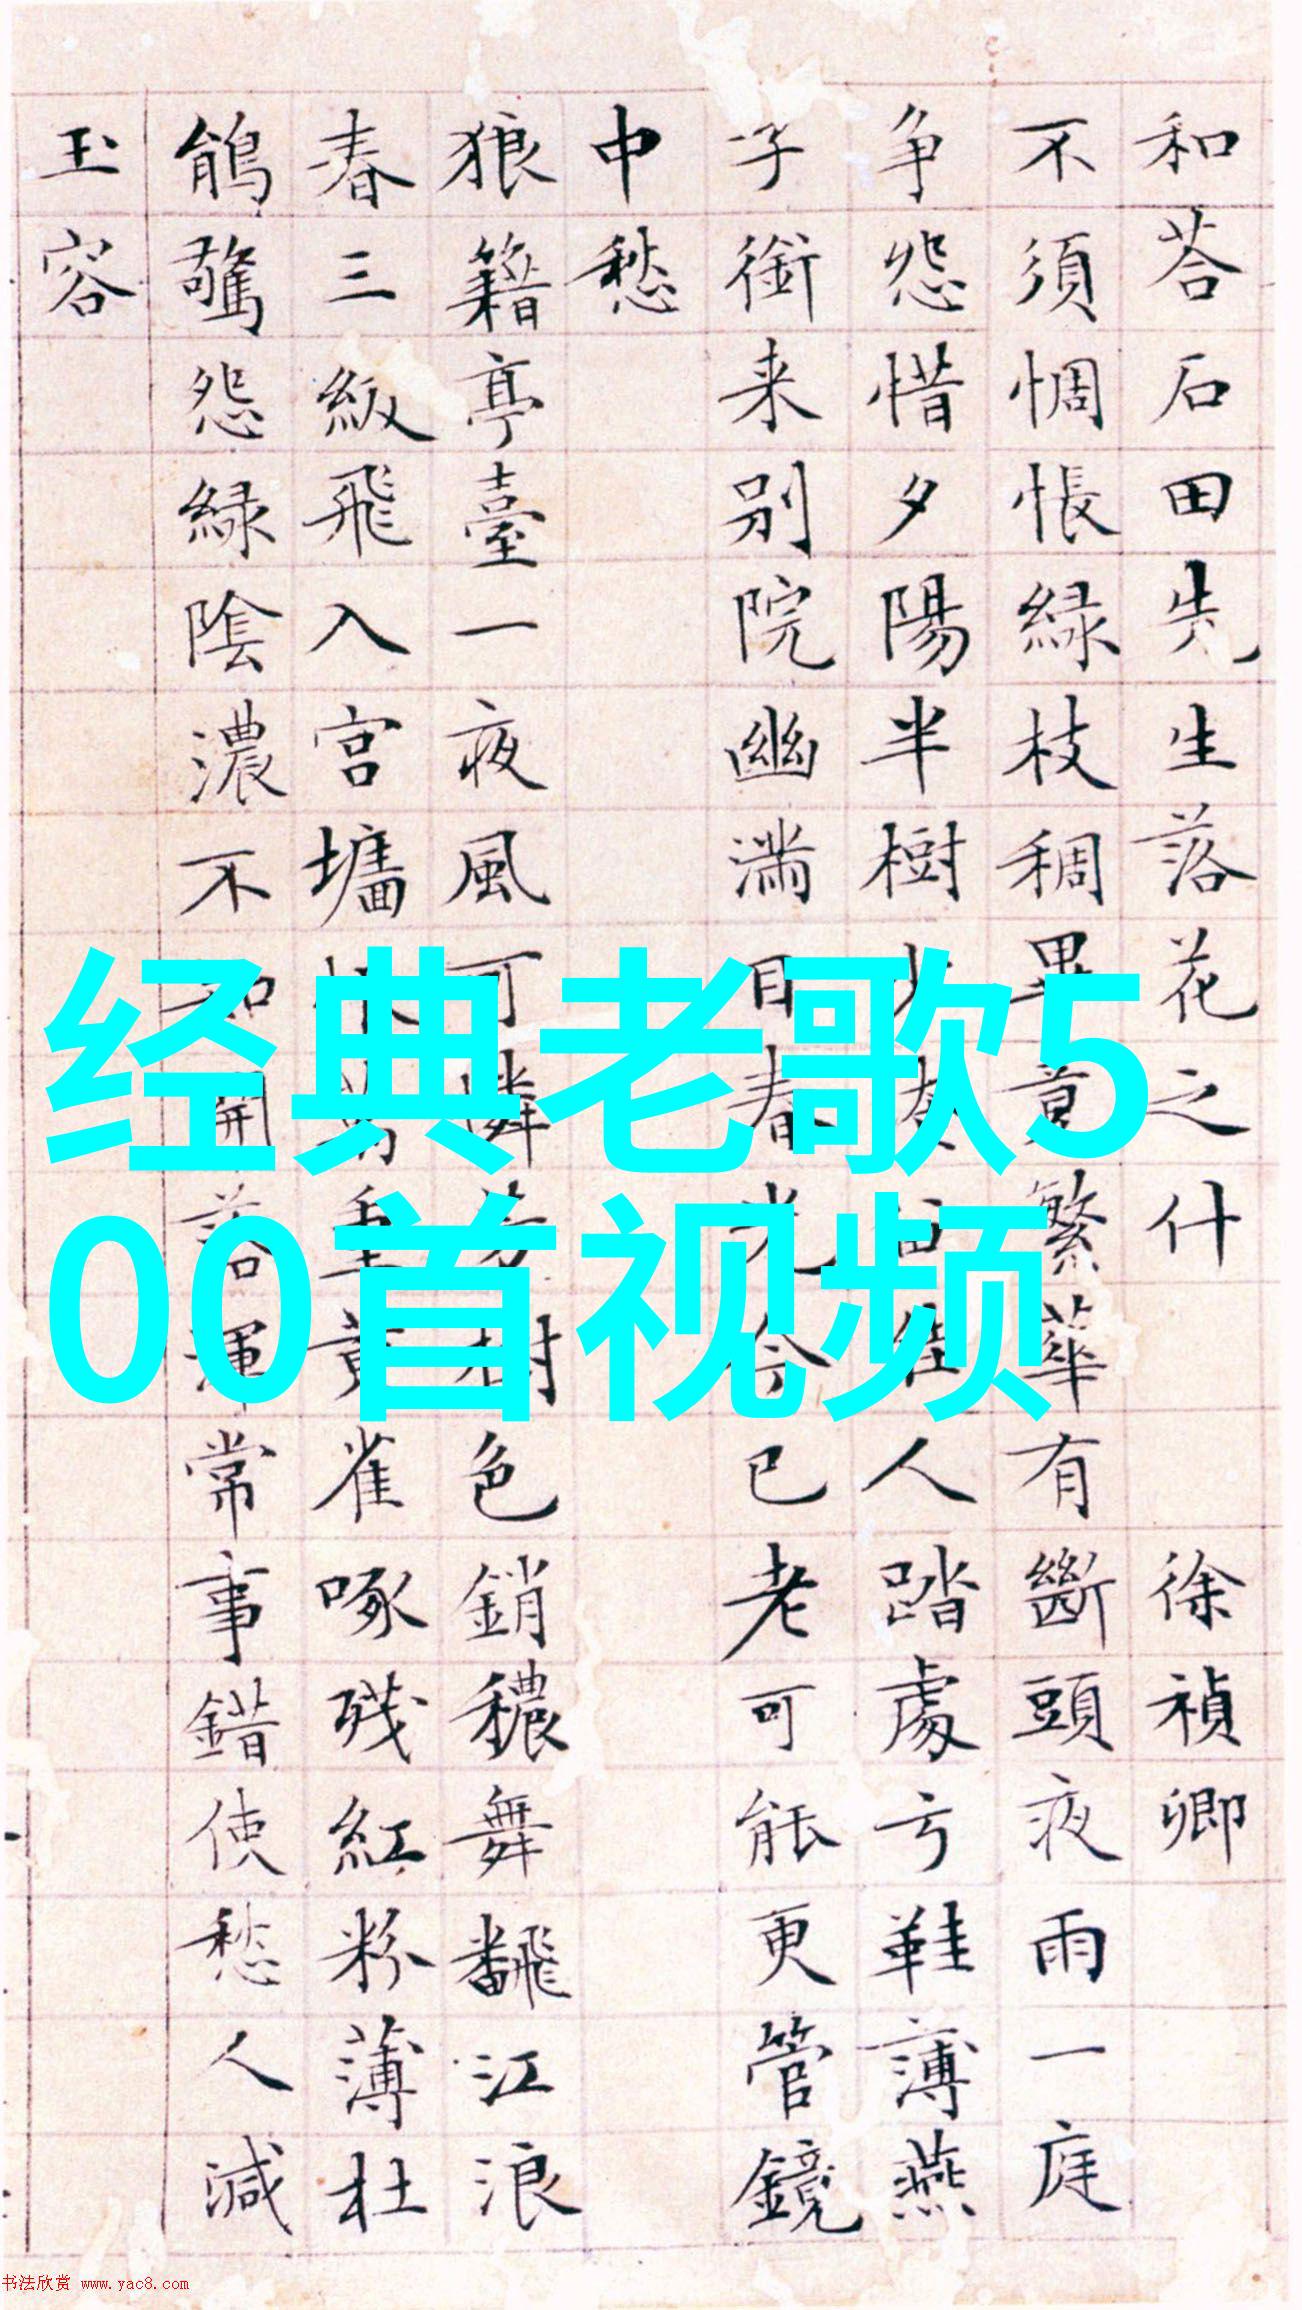 和荅石田先生落花之什 徐禎卿
不須惆悵綠枝稠畢竟繁華有斷頭夜雨一庭
争怨惜夕陽半樹佳人踏處弓鞋薄燕
子銜来别院幽满目春光今已老可䏻更管鏡
中愁
狼籍亭臺一夜風可憐芳樹色銷穠舞飜江浪
春三級飛入宫墻萬重黄雀啄残紅粉薄杜
鵑驚怨綠陰濃不知開落渾常事錯使愁人減
玉容
经典老歌5
00首视频
书法欣赏 www.yac8.com